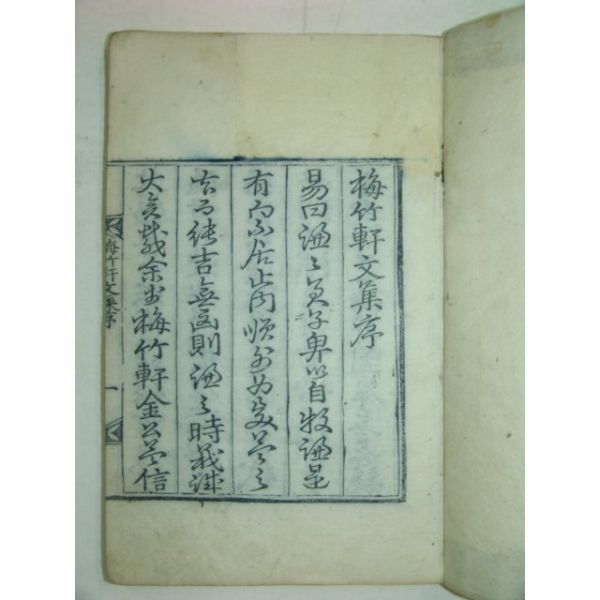 梅竹軒文集序
易曰謙〻君子卑以自牧謙是
有而不居止内順外之
純吉無凶則謙之時義誠
大矣哉余於梅竹軒金公益信
梅竹軒文集序 一